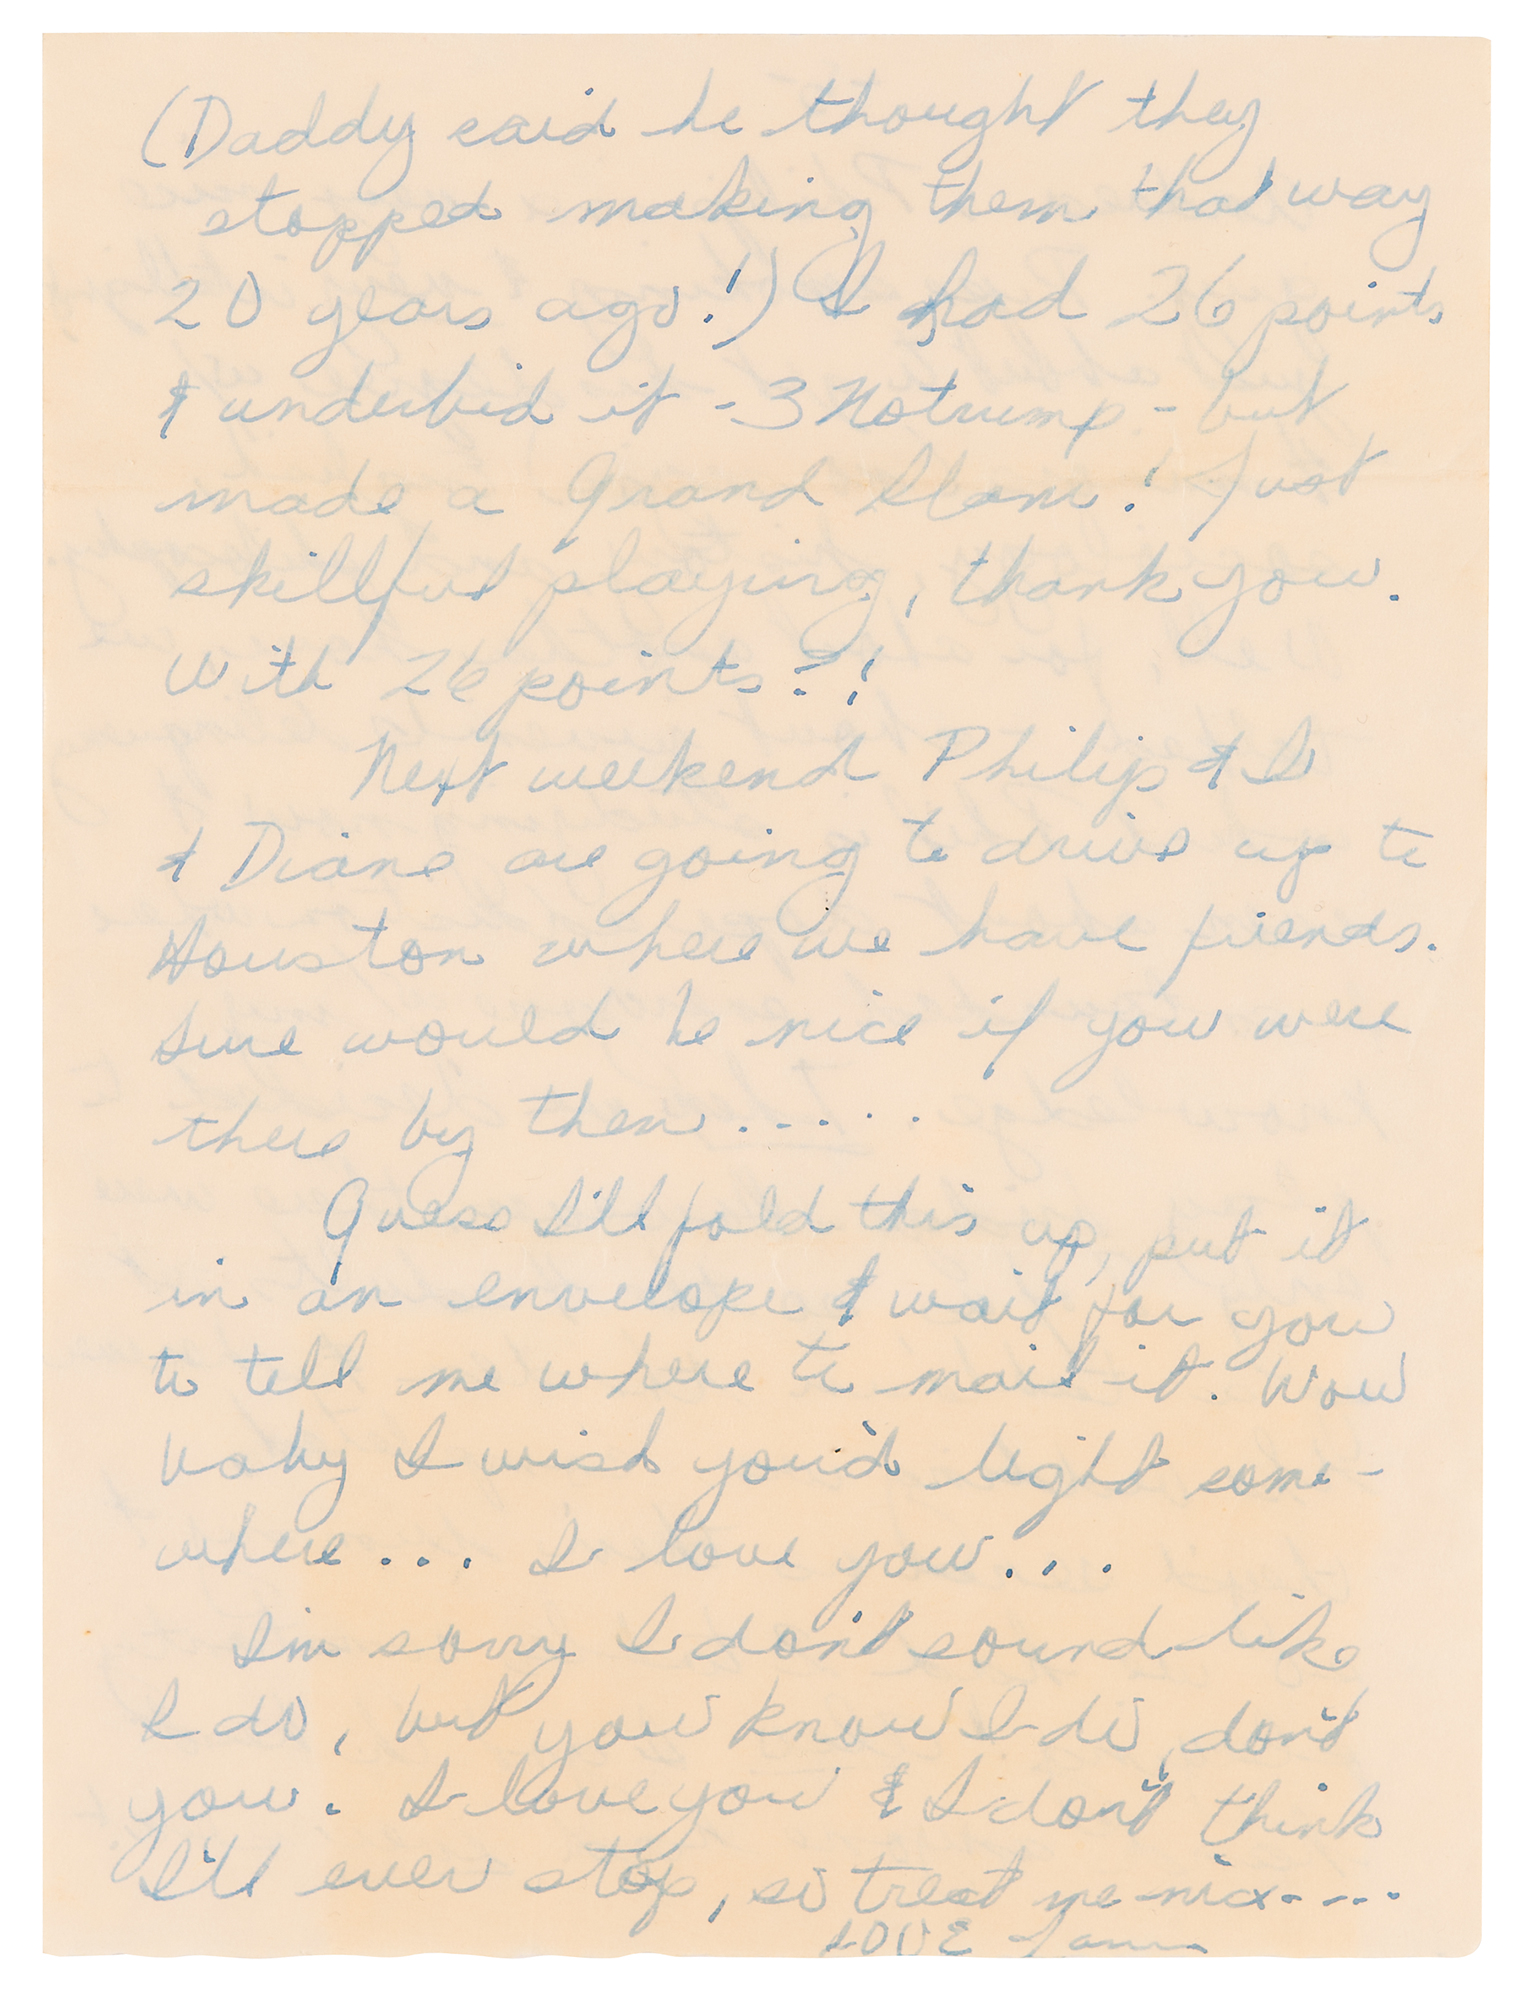 (Daddy said he thought they
stopped making them that way
20 years ago!) I had 26 points
& underbid it - 3 Notrump - but
made a Grand Slam! Just
skillful playing, thank you.
With 26 points?!
Next weekend Philip & I
& Diane are going to drive up to
Houston where we have friends.
Sure would be nice if you were
there by then.....
Guess I'll fold this up, put it
in an envelope & wait for you
to tell me where to mail it. Wow
baby I wish you'd light some-
where... I love you...
I'm sorry I don't sound like
I do, but you know I do, don't
you. I love you & I don't think
I'll ever stop, so treat me nice....
LOVE